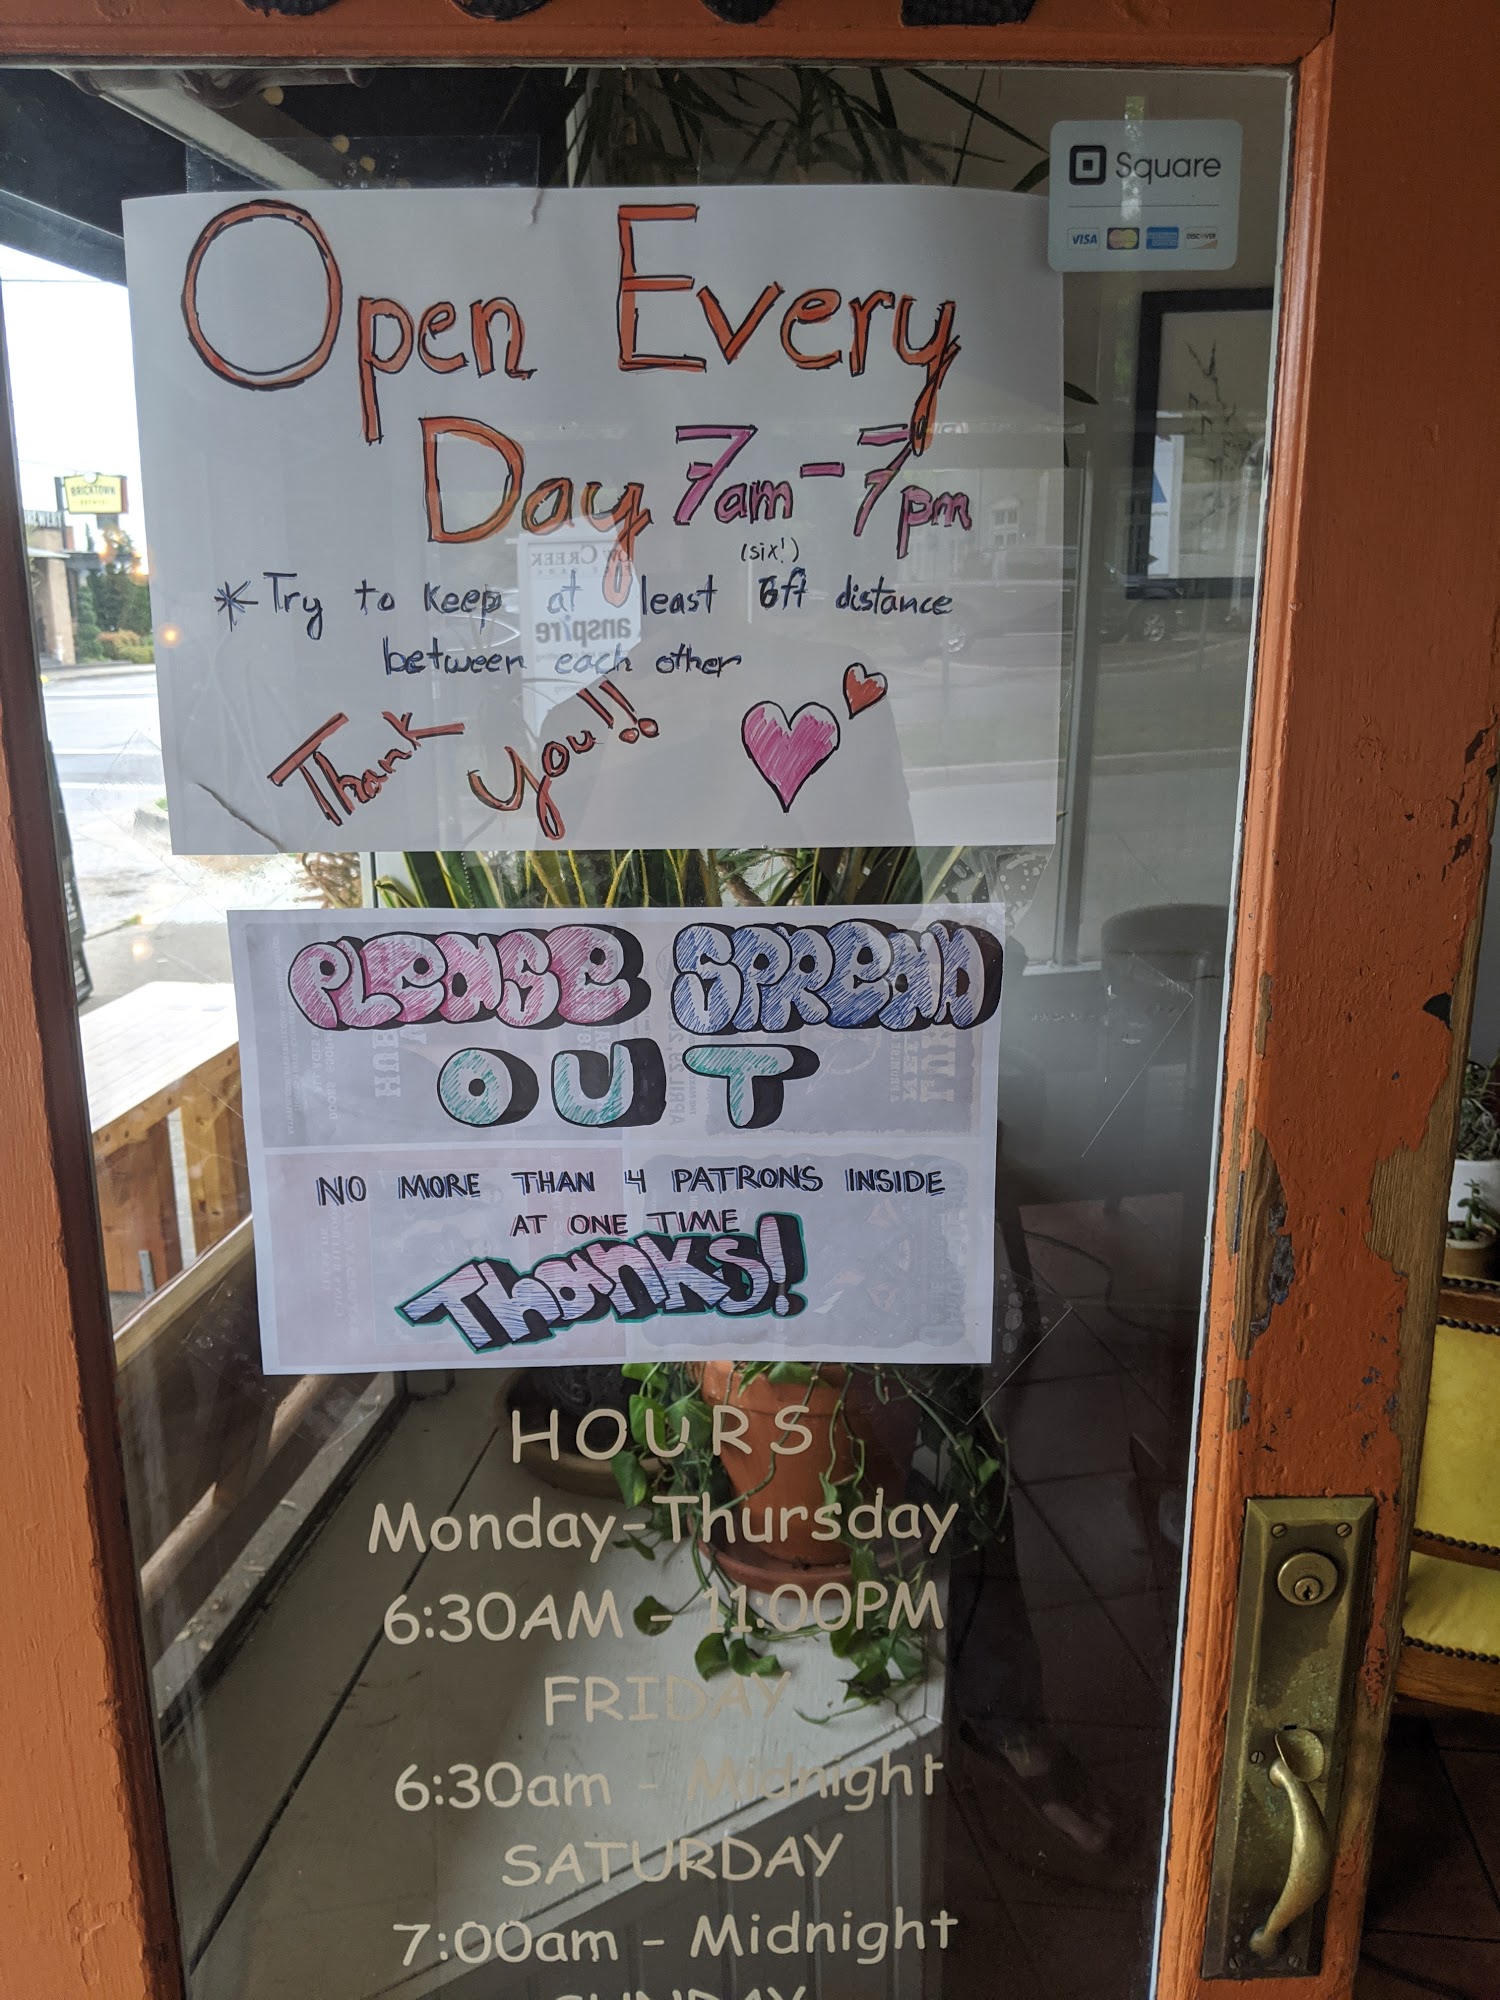 Square
VISA
DISCOVER
Open Every
Day 7am-7pm
(six!)
*Try to keep at least 6ft distance
between each other
Thank you!!
BRICKTOWN
PLEASE SPREAD
OUT
NO MORE THAN 4 PATRONS INSIDE
AT ONE TIME
Thanks!
HOURS
Monday-Thursday
6:30AM - 11:00PM
FRIDAY
6:30am - Midnight
SATURDAY
7:00am - Midnight
SUNDAY